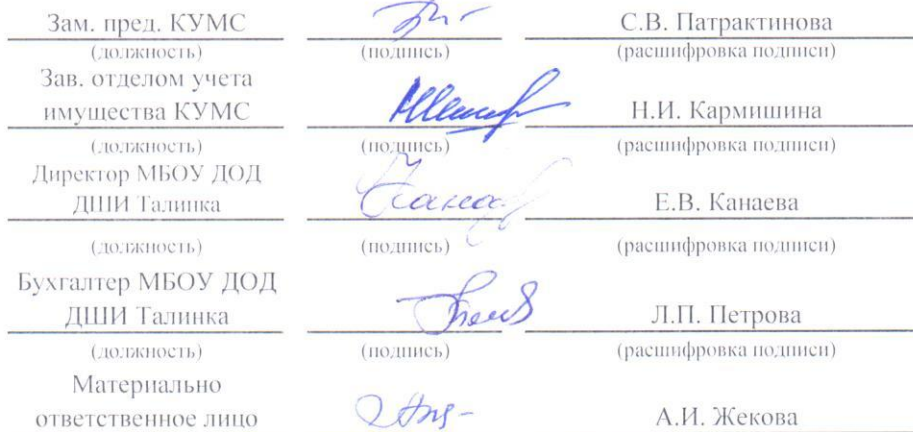 Зам. пред. КУМС С.В. Патрактинова
(должность) (подпись) (расшифровка подписи)
Зав. отделом учета
имущества КУМС Н.И. Кармишина
(должность) (подпись) (расшифровка подписи)
Директор МБОУ ДОД
ДШИ Талинка Е.В. Канаева
(должность) (подпись) (расшифровка подписи)
Бухгалтер МБОУ ДОД
ДШИ Талинка Л.П. Петрова
(должность) (подпись) (расшифровка подписи)
Материально
ответственное лицо А.И. Жекова